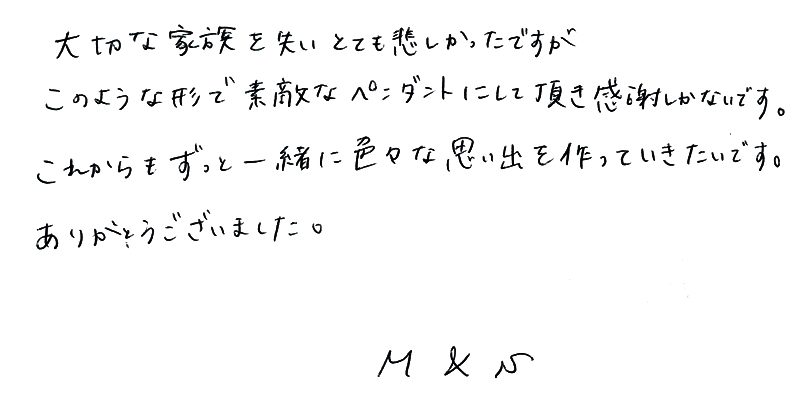 大切な家族を失いとても悲しかったですが
このような形で素敵なペンダントにして頂き感謝しかないです。
これからもずっと一緒に色々な思い出を作っていきたいです。
ありがとうございました。
M & N